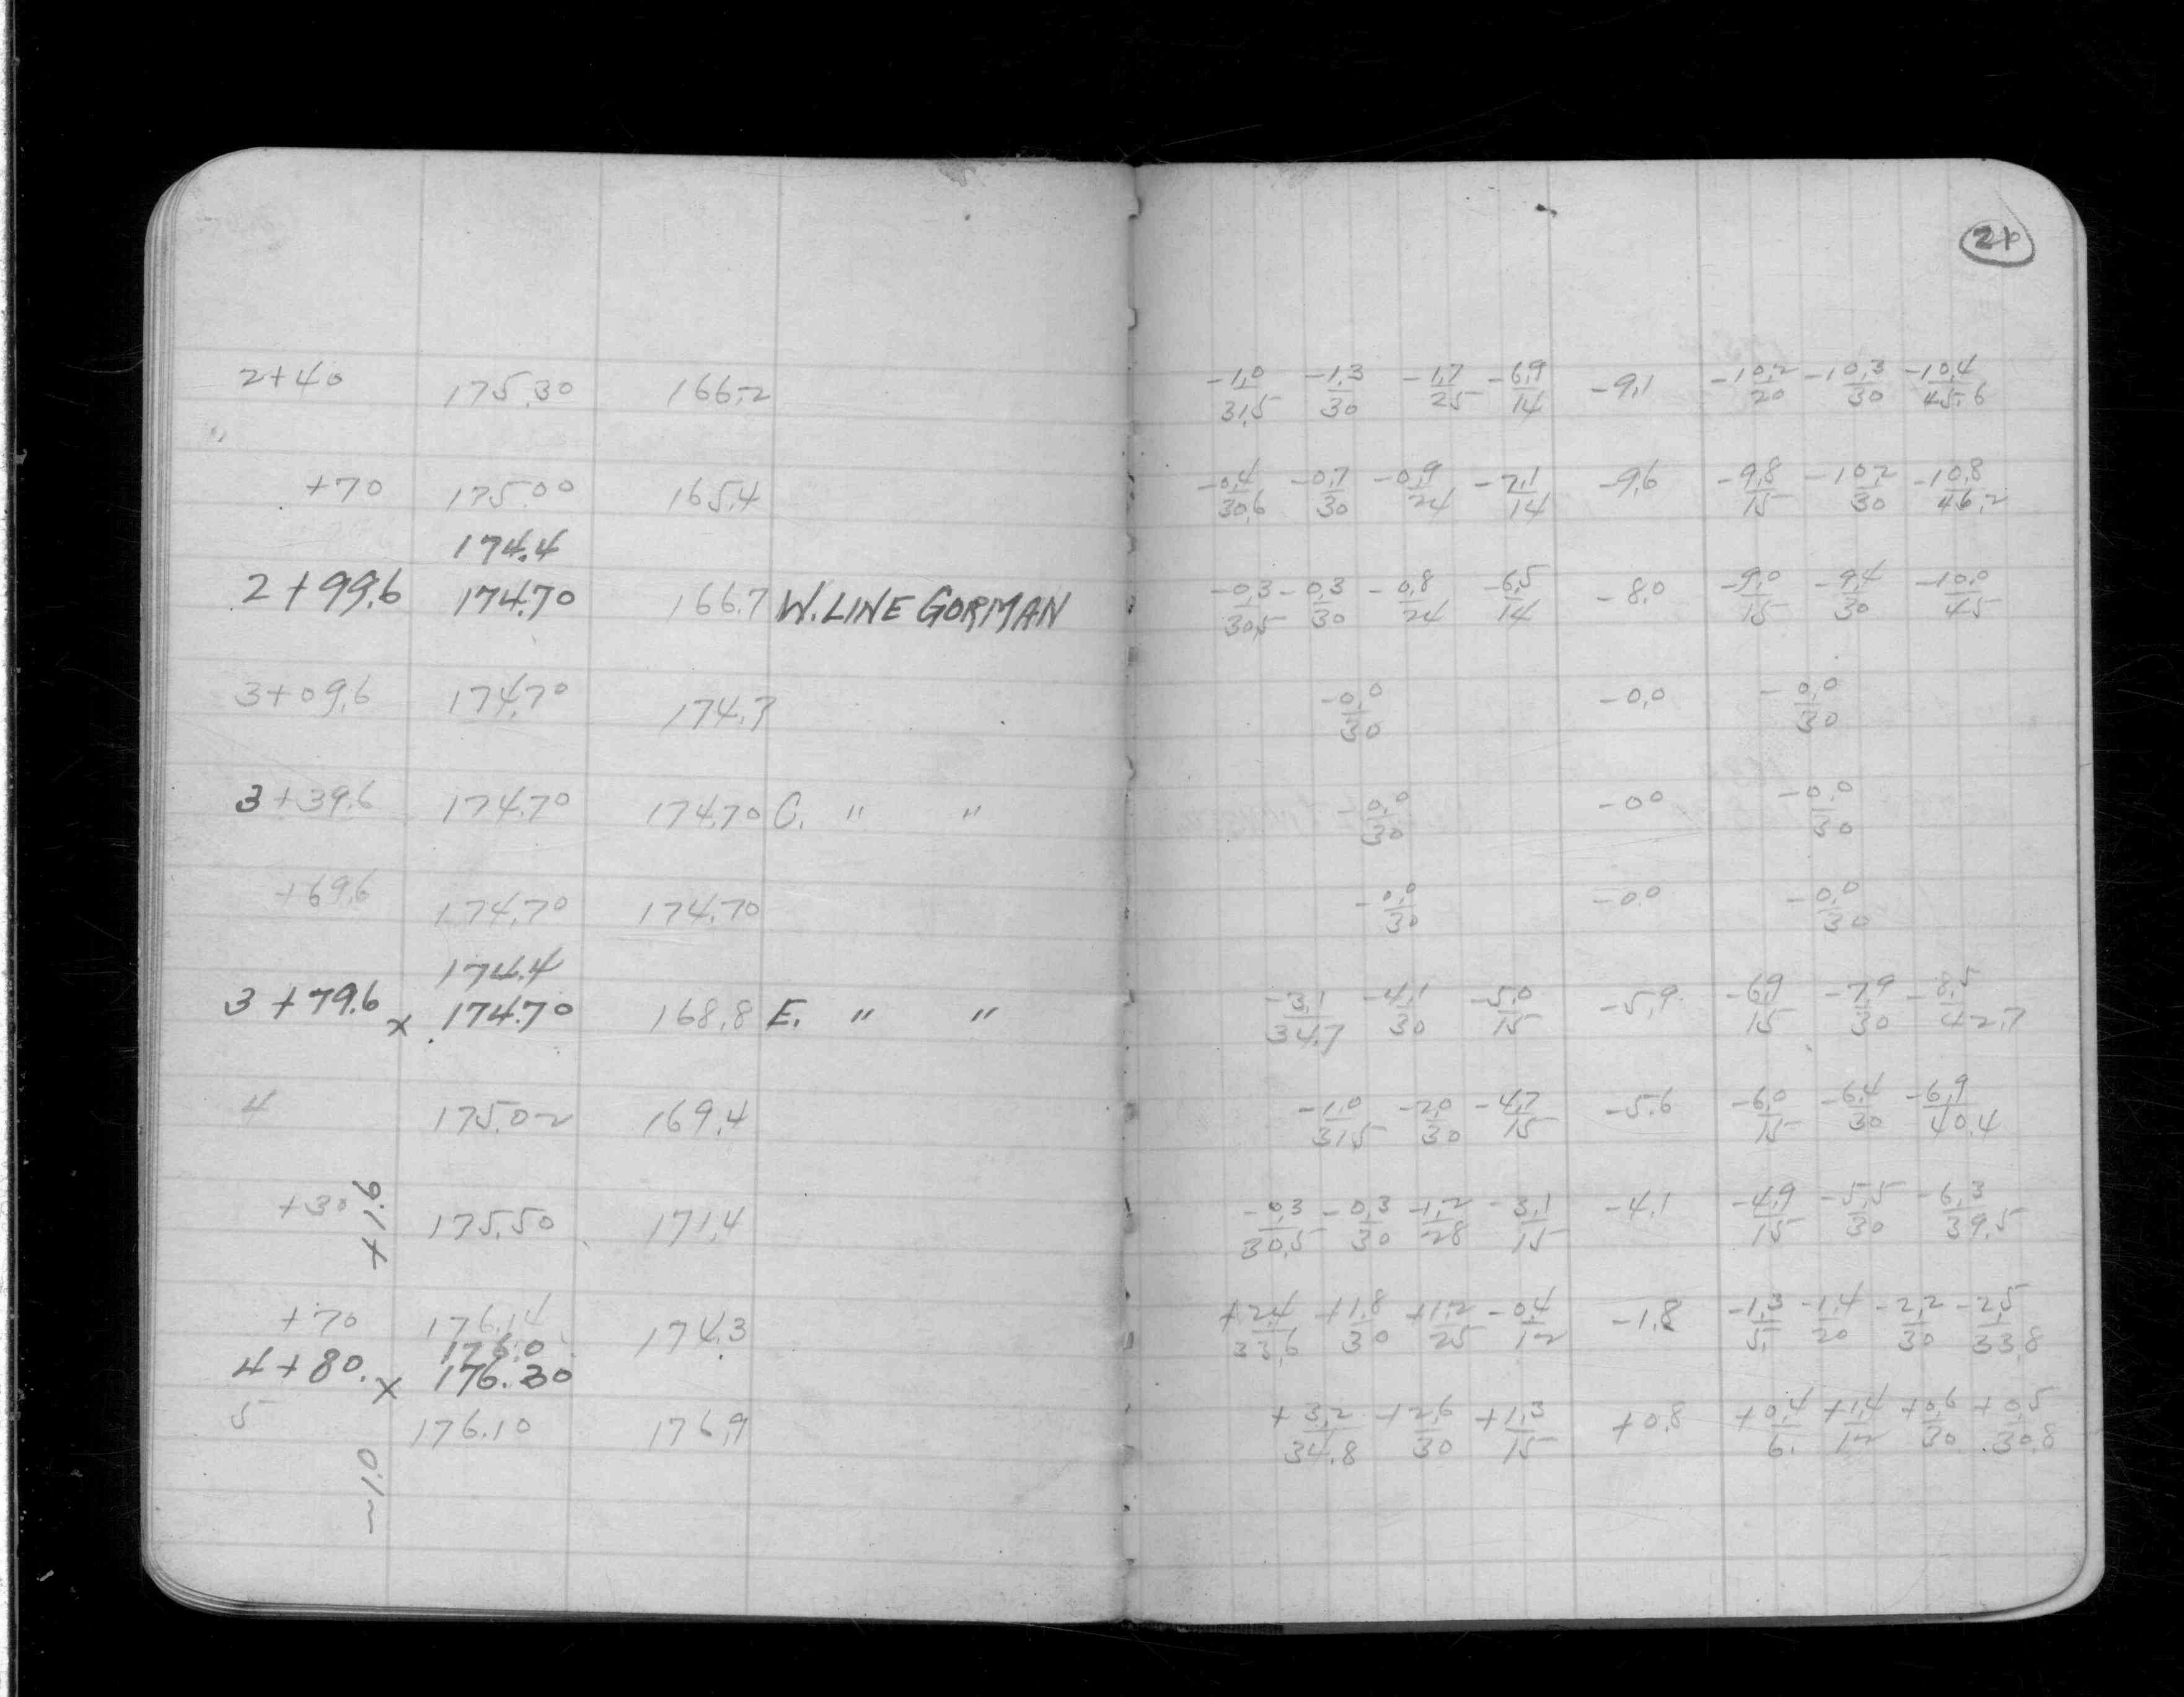 21
2+40 175.30 166.2 -1.0/31.5 -1.3/30 -1.7/25 -6.9/14 -9.1 -10.2/20 -10.3/30 -10.4/45.6
"
+70 175.00 165.4 -0.4/30.6 -0.7/30 -0.9/24 -7.1/14 -9.6 -9.8/15 -10.2/30 -10.8/46.2
174.4
2+99.6 174.70 166.7 W. LINE GORMAN -0.3/30.5 -0.3/30 -0.8/24 -6.5/14 -8.0 -9.0/15 -9.4/30 -10.0/45
3+09.6 174.70 174.7 -0.0/30 -0.0 -0.0/30
3+39.6 174.70 174.70 C. " " -0.0/30 -0.0 -0.0/30
+69.6 174.70 174.70 -0.0/30 -0.0 -0.0/30
174.4
3+79.6 x 174.70 168.8 E. " " -3.1/34.7 -4.1/30 -5.0/15 -5.9 -6.9/15 -7.9/30 -8.5/42.7
4 175.02 169.4 -1.0/31.5 -2.0/30 -4.7/15 -5.6 -6.0/15 -6.4/30 -6.9/40.4
+30 175.50 171.4 -0.3/30.5 -0.3/30 -1.2/28 -3.1/15 -4.1 -4.9/15 -5.5/30 -6.3/39.5
+1.6
+70 176.14 174.3 +2.4/33.6 +1.8/30 +1.2/25 -0.4/12 -1.8 -1.3/5.1 -1.4/20 -2.2/30 -2.5/33.8
176.0
4+80. x 176.30
5 176.10 176.9 +3.2/34.8 +2.6/30 +1.3/15 +0.8 +0.4/6. +1.4/12 +0.6/30 +0.5/30.8
-1.0